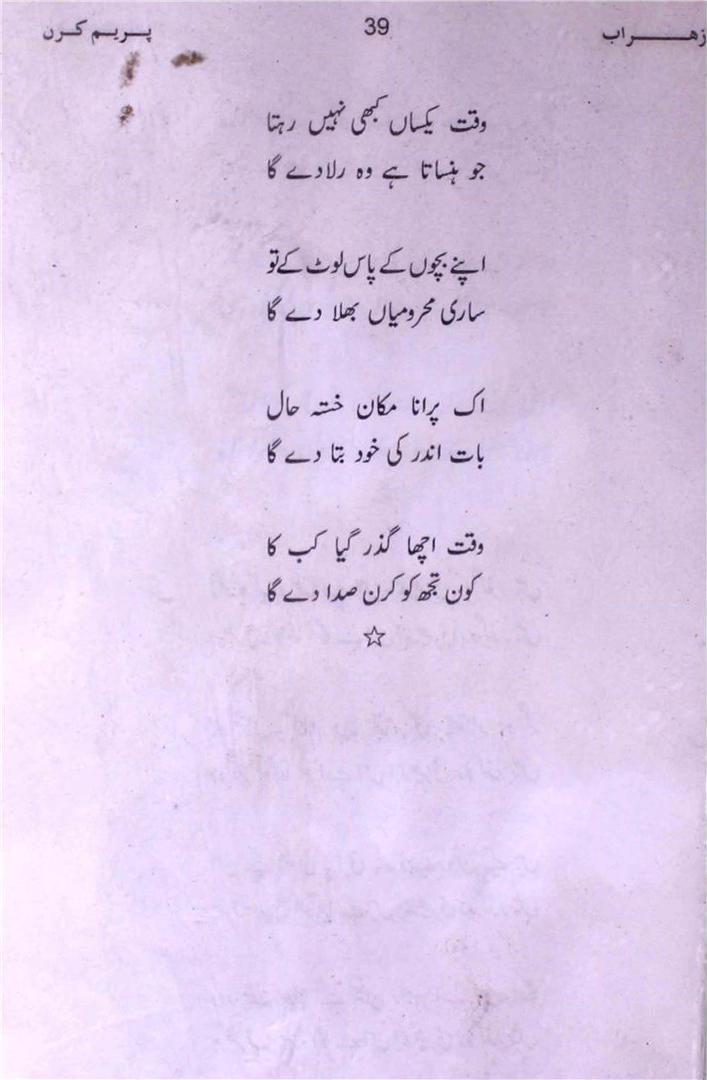 زهراب 39 پریم کرن
وقت یکساں کبھی نہیں رہتا
جو ہنساتا ہے وہ رلادے گا
اپنے بچوں کے پاس لوٹ کے تو
ساری محرومیاں بھلا دے گا
اک پرانا مکان خستہ حال
بات اندر کی خود بتا دے گا
وقت اچھا گذر گیا کب کا
کون تجھ کو کرن صدا دے گا
☆